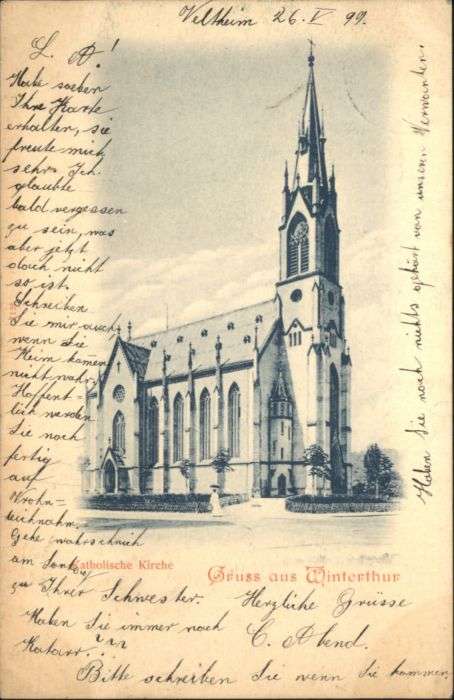 Veltheim 26. V. 99.
L. A!
Habe soeben
Ihre Karte
erhalten, sie
freute mich
sehr. Ich
glaubte
bald vergessen
zu sein, was
aber jetzt
doch nicht
so ist.
Schreiben
Sie mir auch
wenn Sie
Heim kommen
nicht wahr.
Hoffent-
lich werden
Sie noch
fertig
auf
Gehe wahrschnich
am
zu Ihrer Schwester. Herzliche Grüsse
Haben Sie immer noch C. Abend.
Katarr.???
Bitte schreiben Sie wenn Sie kommen
Haben Sie noch nichts gehört von unseren Verwandten.
Catholische Kirche
Gruss aus Winterthur